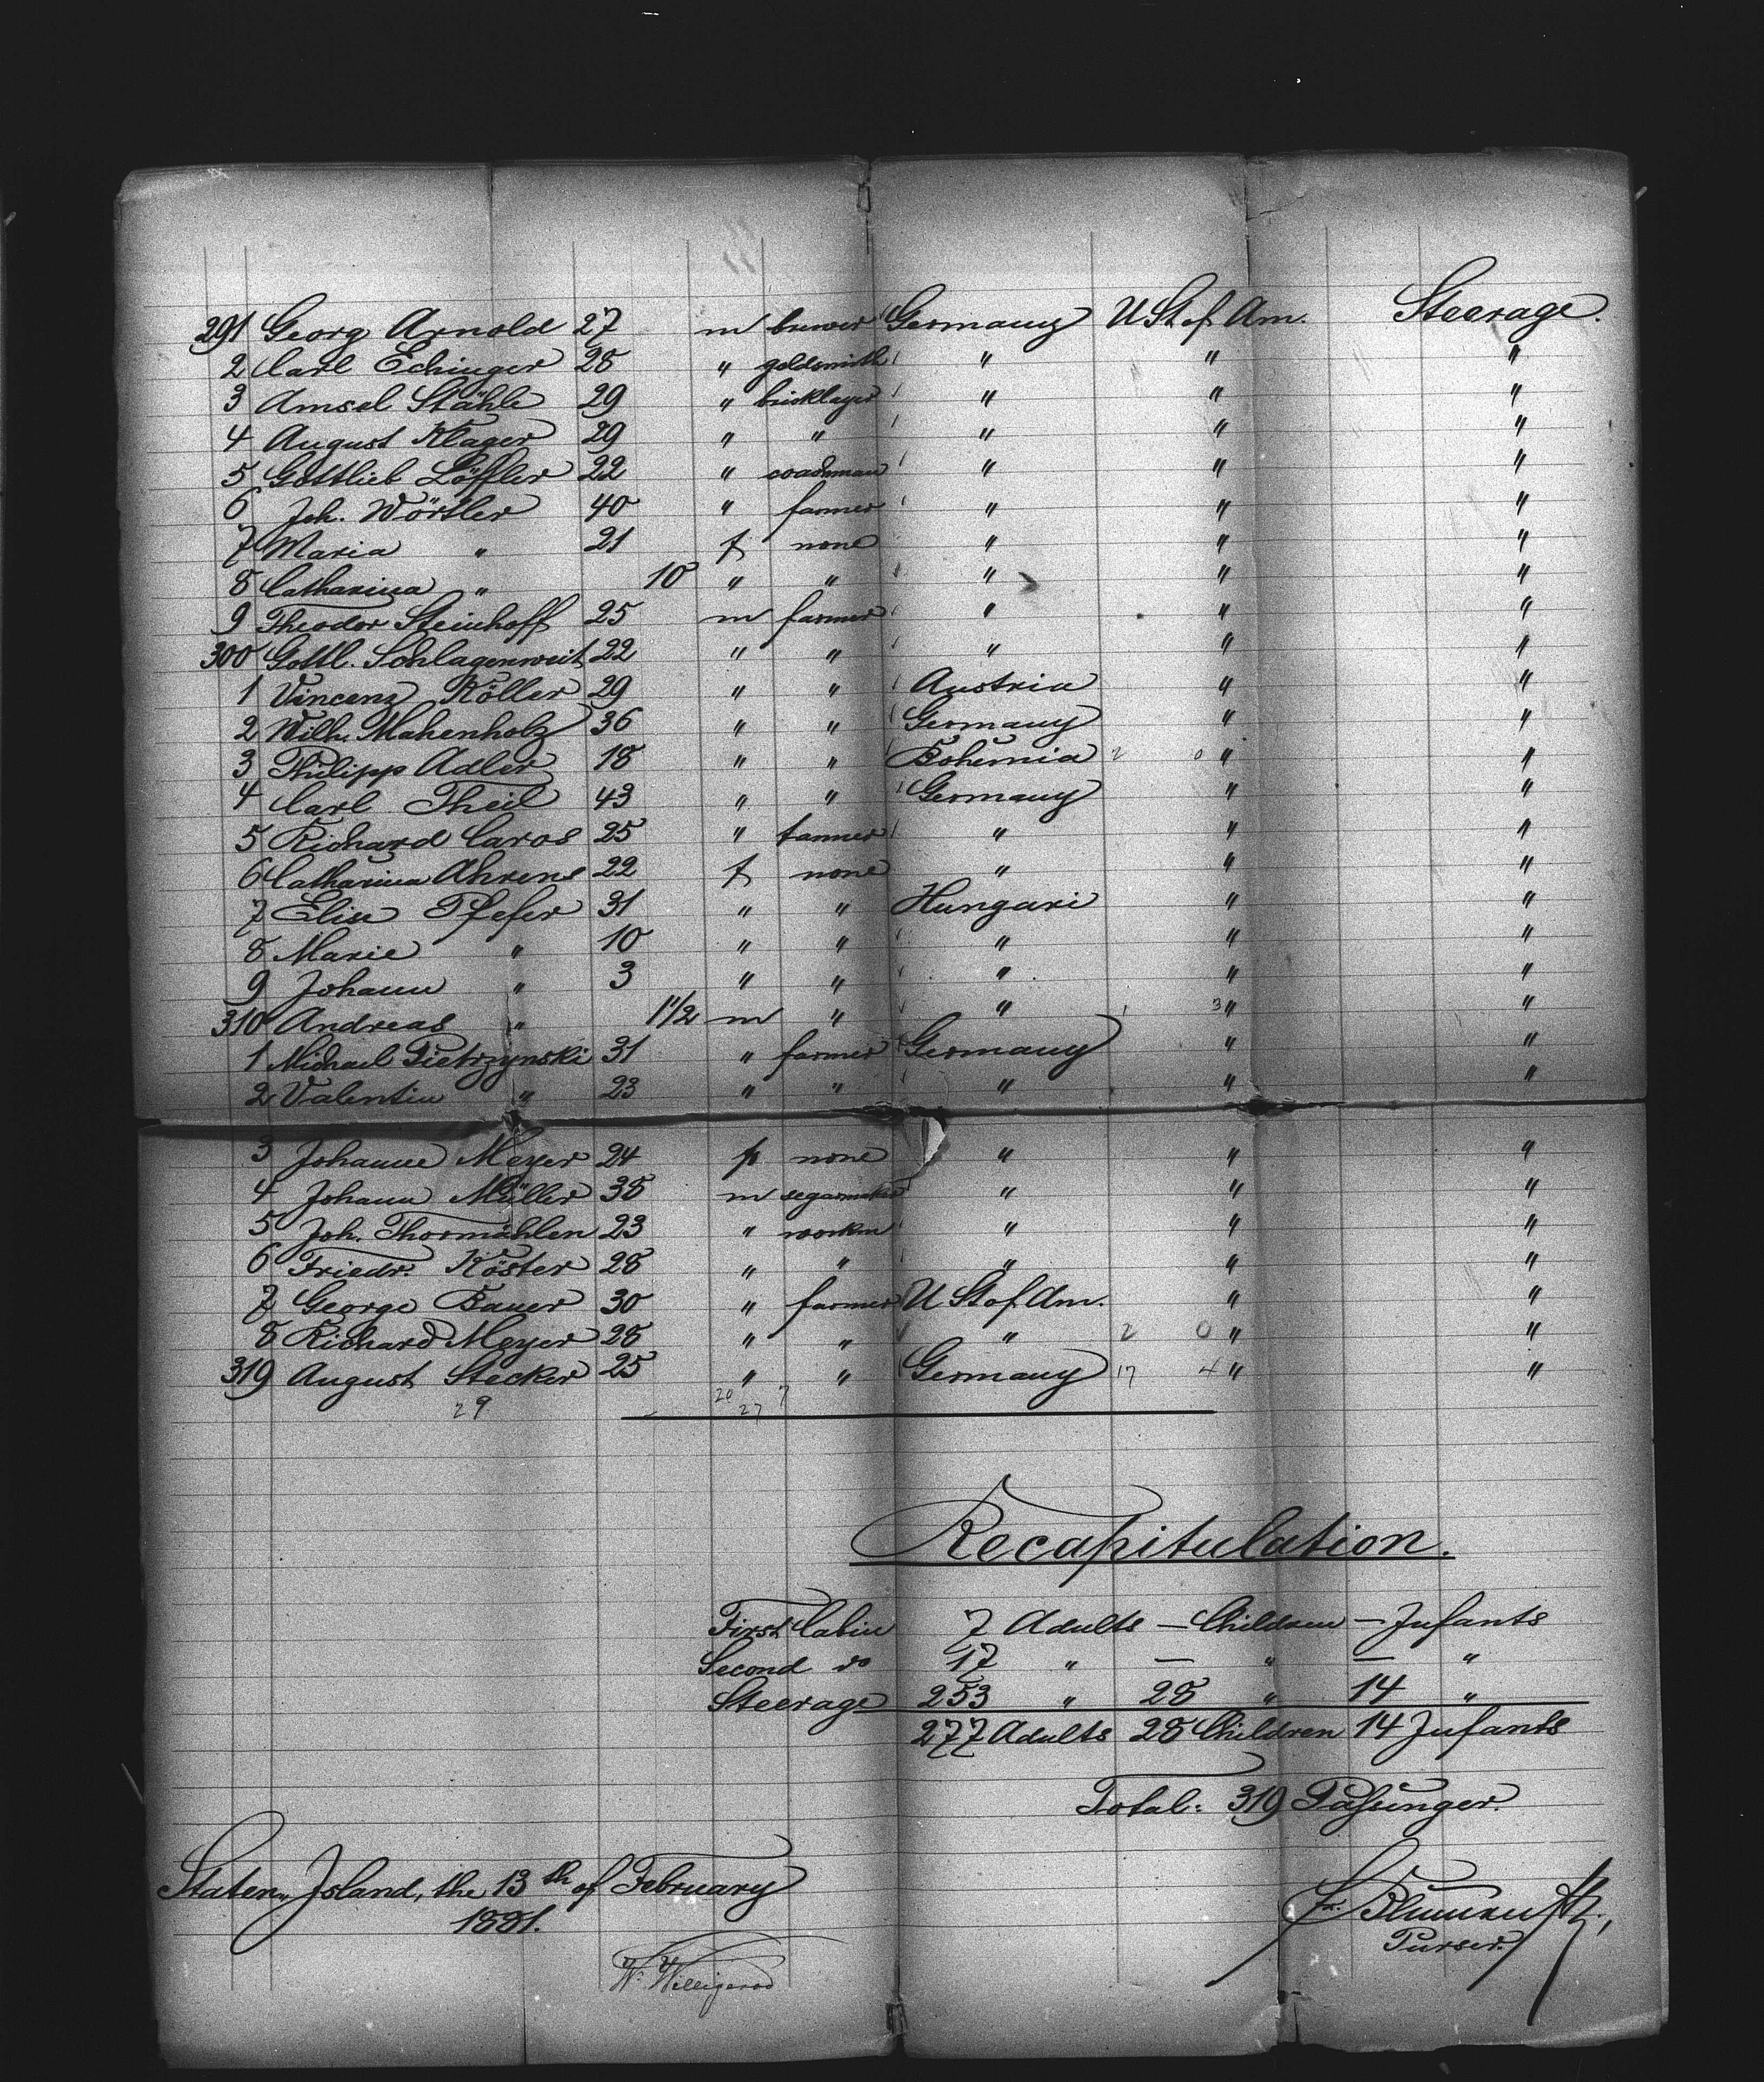 291 Georg Arnold 27 m brewer Germany U St of Am. Steerage.
2 Carl Echinger 28 " goldsmith " " "
3 Amsel Stähle 29 " bricklayer " " "
4 August Klager 29 " " " " "
5 Gottlieb Löffler 22 " coachman " " "
6 Joh. Wörtler 40 " farmer " " "
7 Maria " 21 f none " " "
8 Catharina " 10 " " " " "
9 Theodor Steinhoff 25 m farmer " " "
300 Gottl. Schlagenweit 22 " " " " "
1 Vincenz Köller 29 " " Austria " "
2 Wilh. Mahenholz 36 " " Germany " "
3 Philipp Adler 18 " " Bohemia 2 0 " "
4 Carl Theil 43 " " Germany " "
5 Richard Caros 25 " tanner " " "
6 Catharina Ahrens 22 f none " " "
7 Elise Pfefer 31 " " Hungari " "
8 Marie " 10 " " " " "
9 Johann " 3 " " " " "
310 Andreas " 1 1/2 m " " 1 3 " "
1 Michael Pietrzynski 31 " farmer Germany " "
2 Valentin " 23 " " " " "
3 Johanne Meyer 24 f none " " "
4 Johann Müller 38 m segarmaker " " "
5 Joh. Thormählen 23 " workm " " "
6 Friedr. Köster 28 " " " " "
7 George Bauer 30 " farmer U St of Am. " "
8 Richard Meyer 28 " " " 2 0 " "
319 August Stecker 25 " " Germany 17 4 " "
29 20 27 7
Recapitulation.
First Cabin 7 Adults — Children — Infants
Second do 17 " — " — "
Steerage 253 " 28 " 14 "
277 Adults 28 Children 14 Infants
Total: 319 Passenger.
Staten Island, the 13th of February
1881.
W. Willigerod
Purser.